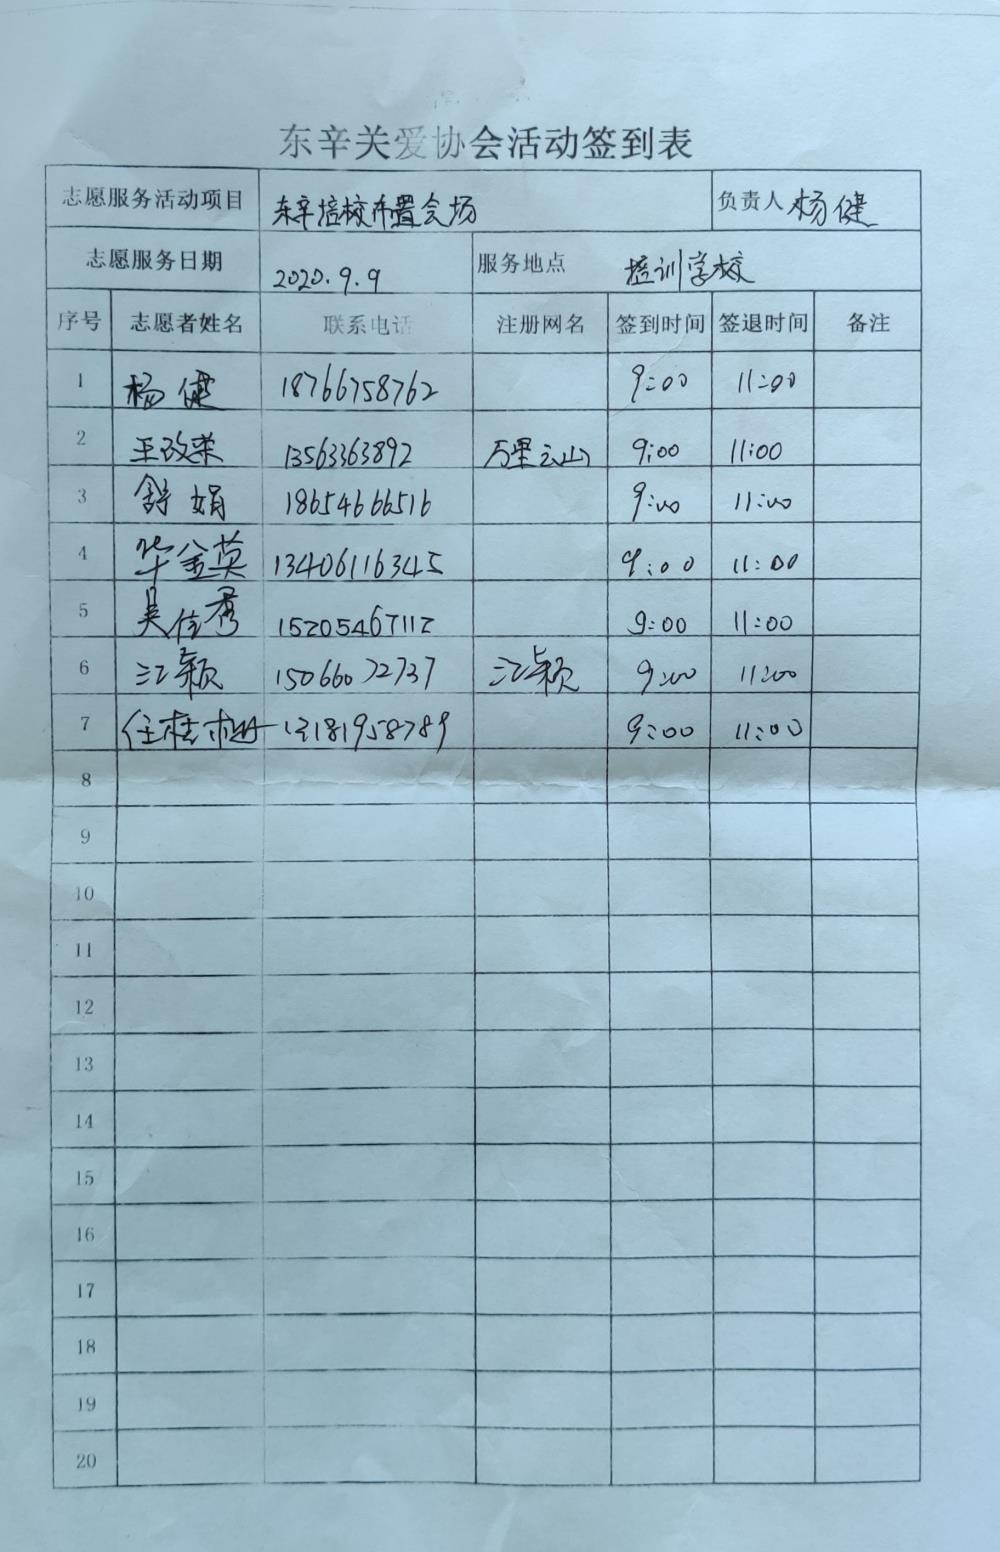 东辛关爱协会活动签到表
志愿服务活动项目 东辛培校布置会场 负责人 杨健
志愿服务日期 2020.9.9 服务地点 培训学校
序号 志愿者姓名 联系电话 注册网名 签到时间 签退时间 备注
1 杨健 18766758762 9:00 11:00
2 王改荣 13563363892 万里云山 9:00 11:00
3 舒娟 18654666516 9:00 11:00
4 华金英 13406116345 9:00 11:00
5 吴佳秀 15205467112 9:00 11:00
6 江颖 15066072737 江颖 9:00 11:00
7 任桂树 13181958789 9:00 11:00
8
9
10
11
12
13
14
15
16
17
18
19
20